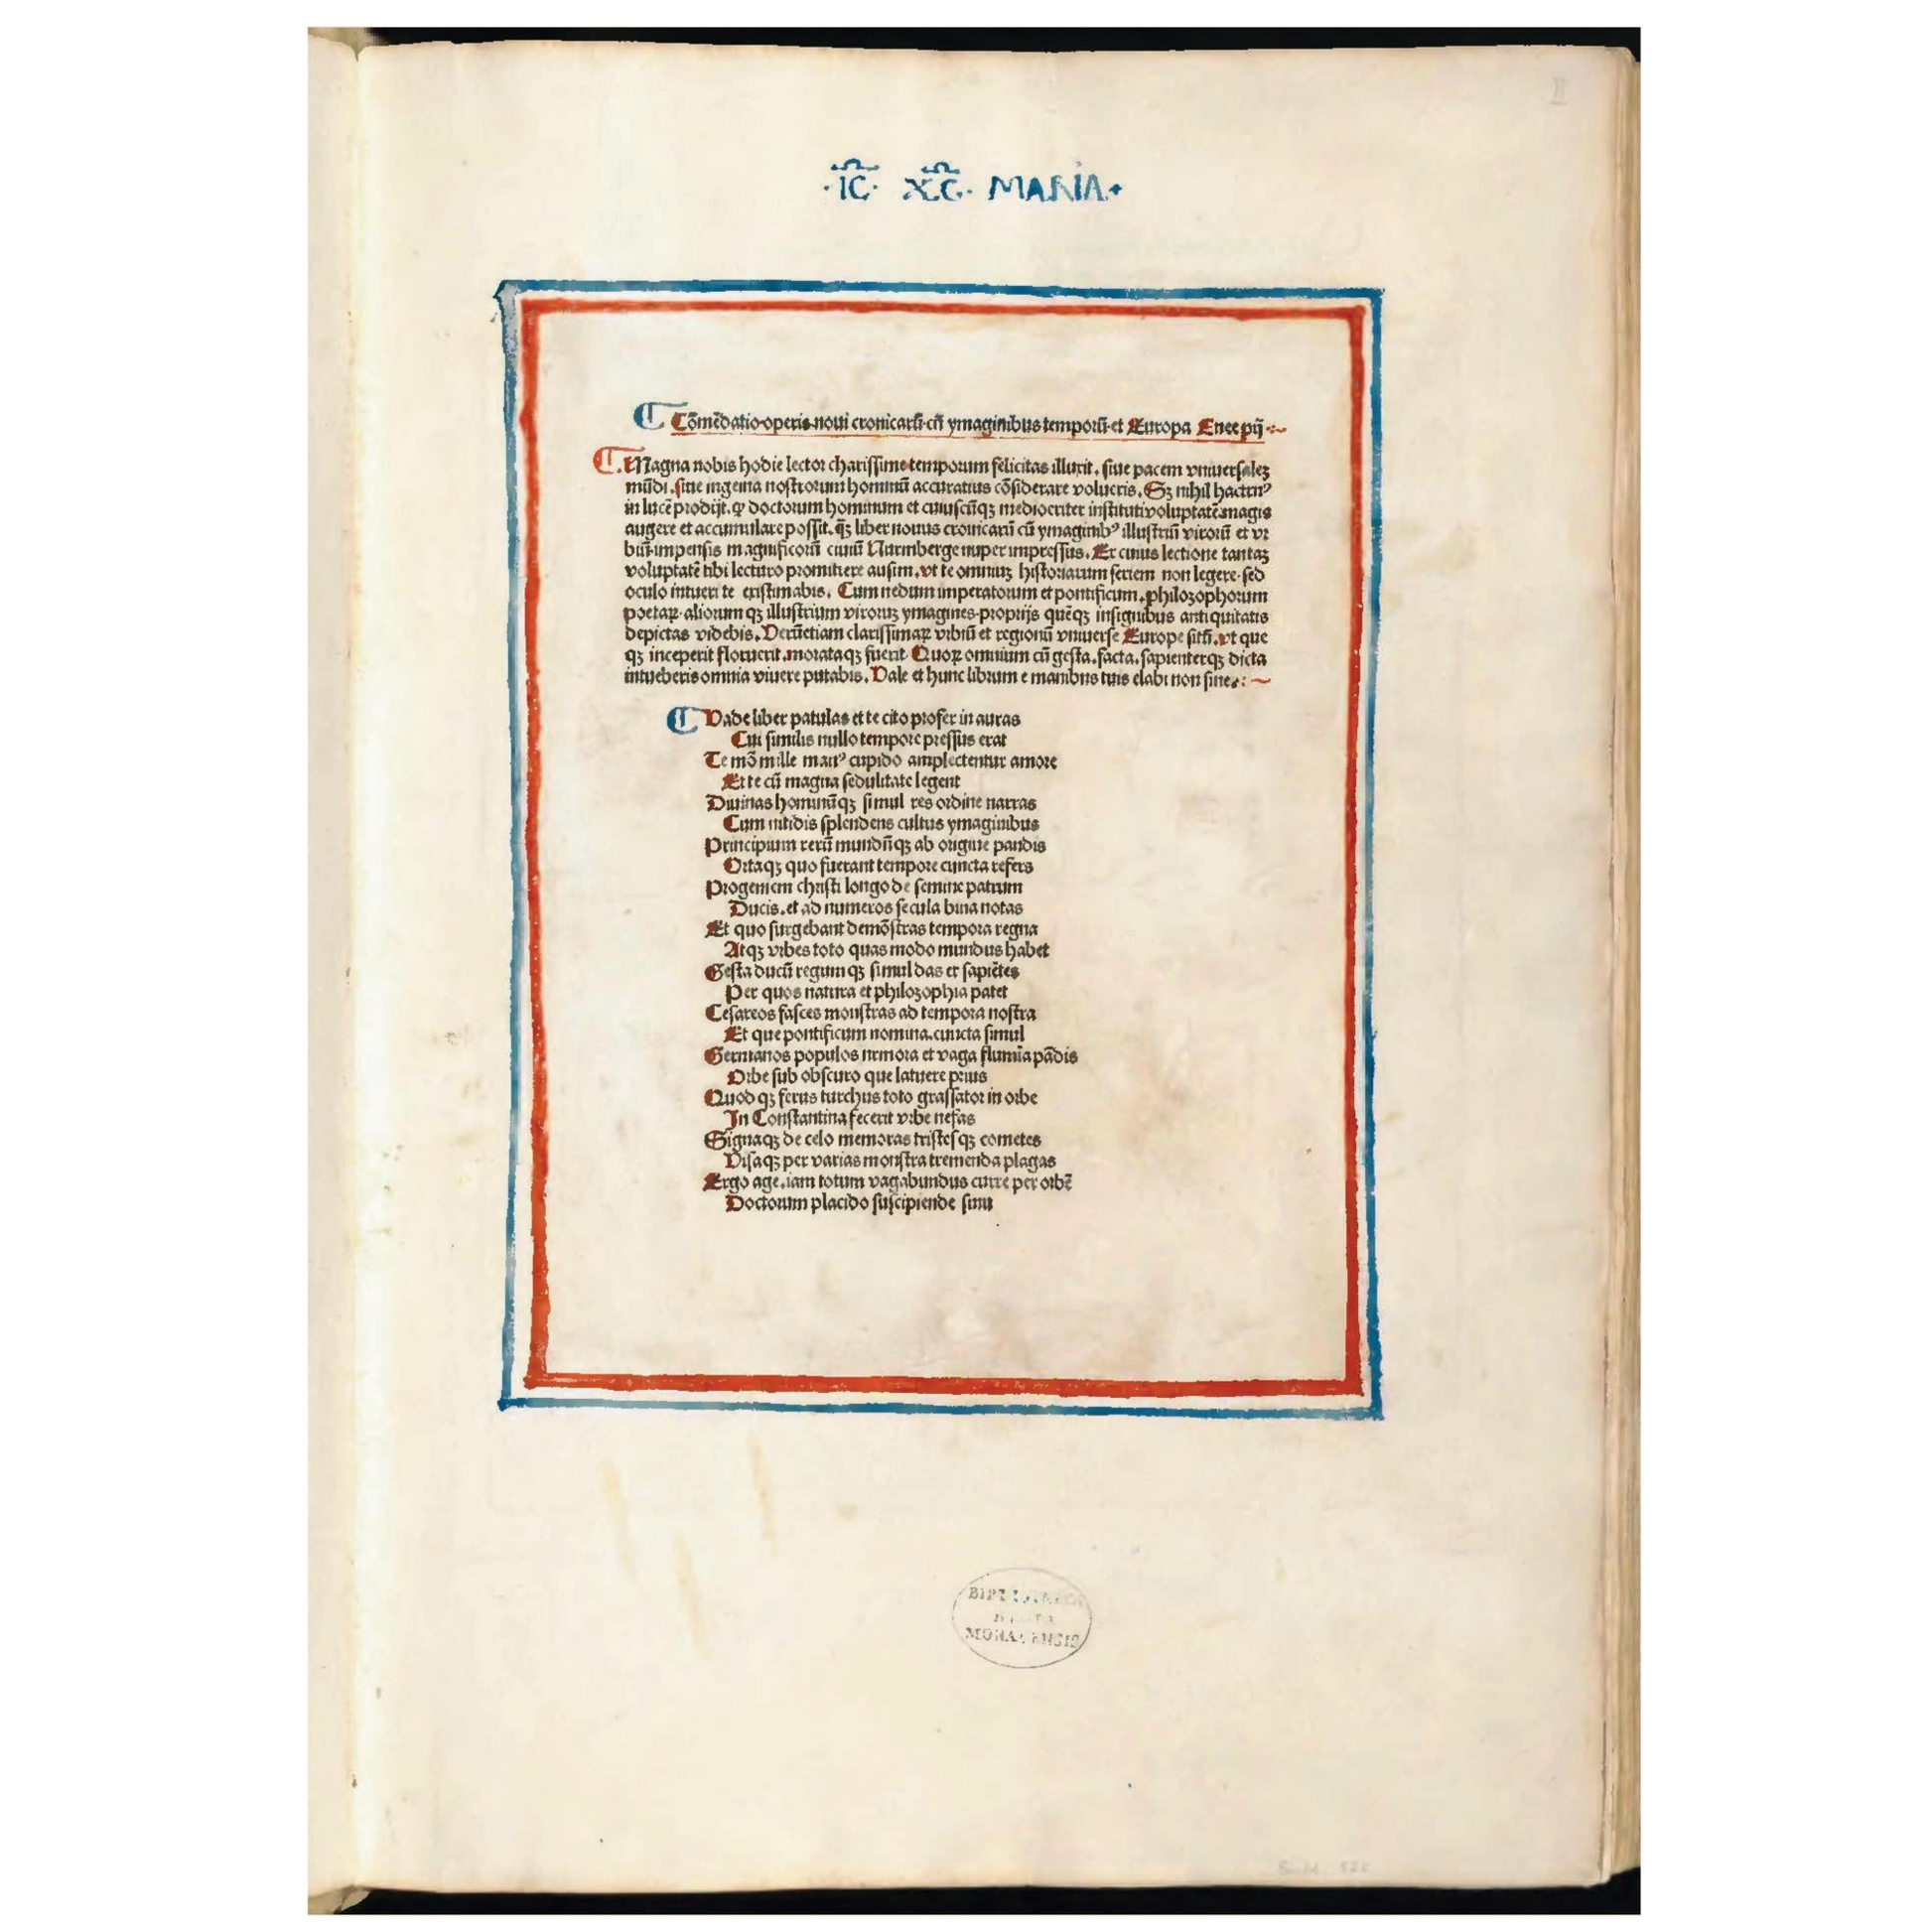 II
·IC̄· XC̄· MARIA·
Cōmēdatio operis noui cronicarū cū ymaginibus temporū et Europa Enee pij
Magna nobis hodie lector charissime temporum felicitas illuxit. siue pacem vniuersalez
mūdi. siue ingenia nostrorum hominū accuratius cōsiderare volueris. Sꝫ nihil hactenꝰ
in lucē prodijt. ꝙ doctorum hominum et cuiuscūqꝫ mediocriter instituti voluptatē magis
augere et accumulare possit. q̄ꝫ liber nouus cronicarū cū ymaginibꝰ illustriū virorū et vr
biū impensis magnificorū ciuiū Nurmberge nuper impressus. Ex cuius lectione tantaꝫ
voluptatē tibi lecturo promittere ausim. vt te omniuꝫ historiarum seriem non legere. sed
oculo intueri te existimabis. Cum nedum imperatorum et pontificum. philozophorum
poetaꝝ aliorum qꝫ illustrium viroruꝫ ymagines proprijs quēqꝫ insignibus antiquitatis
depictas videbis. Verūetiam clarissimaꝝ vrbiū et regionū vniuerse Europe sitū. vt que
qꝫ inceperit floruerit. morataqꝫ fuerit. Quoꝝ omnium cū gesta. facta. sapienterqꝫ dicta
intueberis omnia viuere putabis. Vale et hunc librum e manibus tuis elabi non sine.
Vade liber patulas et te cito profer in auras
Cui similis nullo tempore pressus erat
Te mō mille manꝰ cupido amplectentur amore
Et te cū magna sedulitate legent
Diuinas hominūqꝫ simul res ordine narras
Cum nitidis splendens cultus ymaginibus
Principium rerū mundūqꝫ ab origine pandis
Ortaqꝫ quo fuerant tempore cuncta refers
Progeniem christi longo de semine patrum
Ducis. et ad numeros secula bina notas
Et quo surgebant demōstras tempora regna
Atqꝫ vrbes toto quas modo mundus habet
Gesta ducū regum qꝫ simul das et sapiētes
Per quos natura et philozophia patet
Cesareos fasces monstras ad tempora nostra
Et que pontificum nomina. cuncta simul
Germanos populos nemora et vaga flumīa pādis
Orbe sub obscuro que latuere prius
Quod qꝫ ferus turchus toto grassator in orbe
In Constantina fecerit vrbe nefas
Signaqꝫ de celo memoras tristesqꝫ cometes
Visaqꝫ per varias monstra tremenda plagas
Ergo age. iam totum vagabundus curre per orbē
Doctorum placido suscipiende sinu